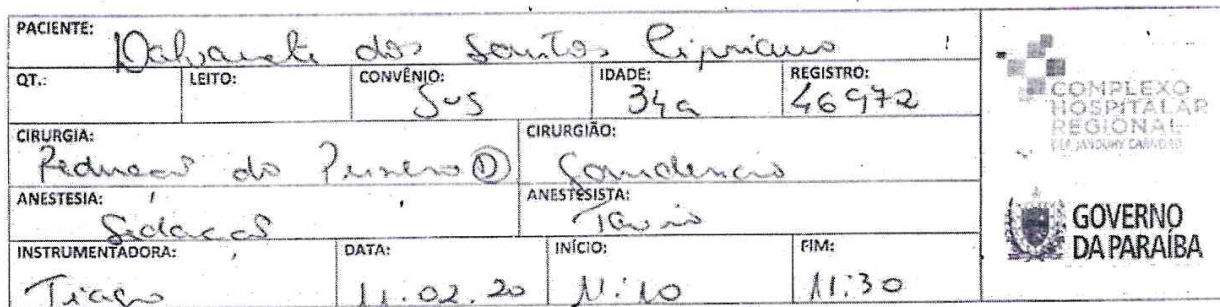 PACIENTE: Dalvanete dos Santos Cipriano
QT.: LEITO: CONVÊNIO: SUS IDADE: 34a REGISTRO: 46972
CIRURGIA: Reducao do Punho D CIRURGIÃO:
ANESTESIA: Sedacao ANESTESISTA:
INSTRUMENTADORA: Tiago DATA: 11.02.20 INÍCIO: 11:10 FIM: 11:30
COMPLEXO
HOSPITALAR
REGIONAL
DEP. JANDUHY CARNEIRO
GOVERNO
DA PARAÍBA